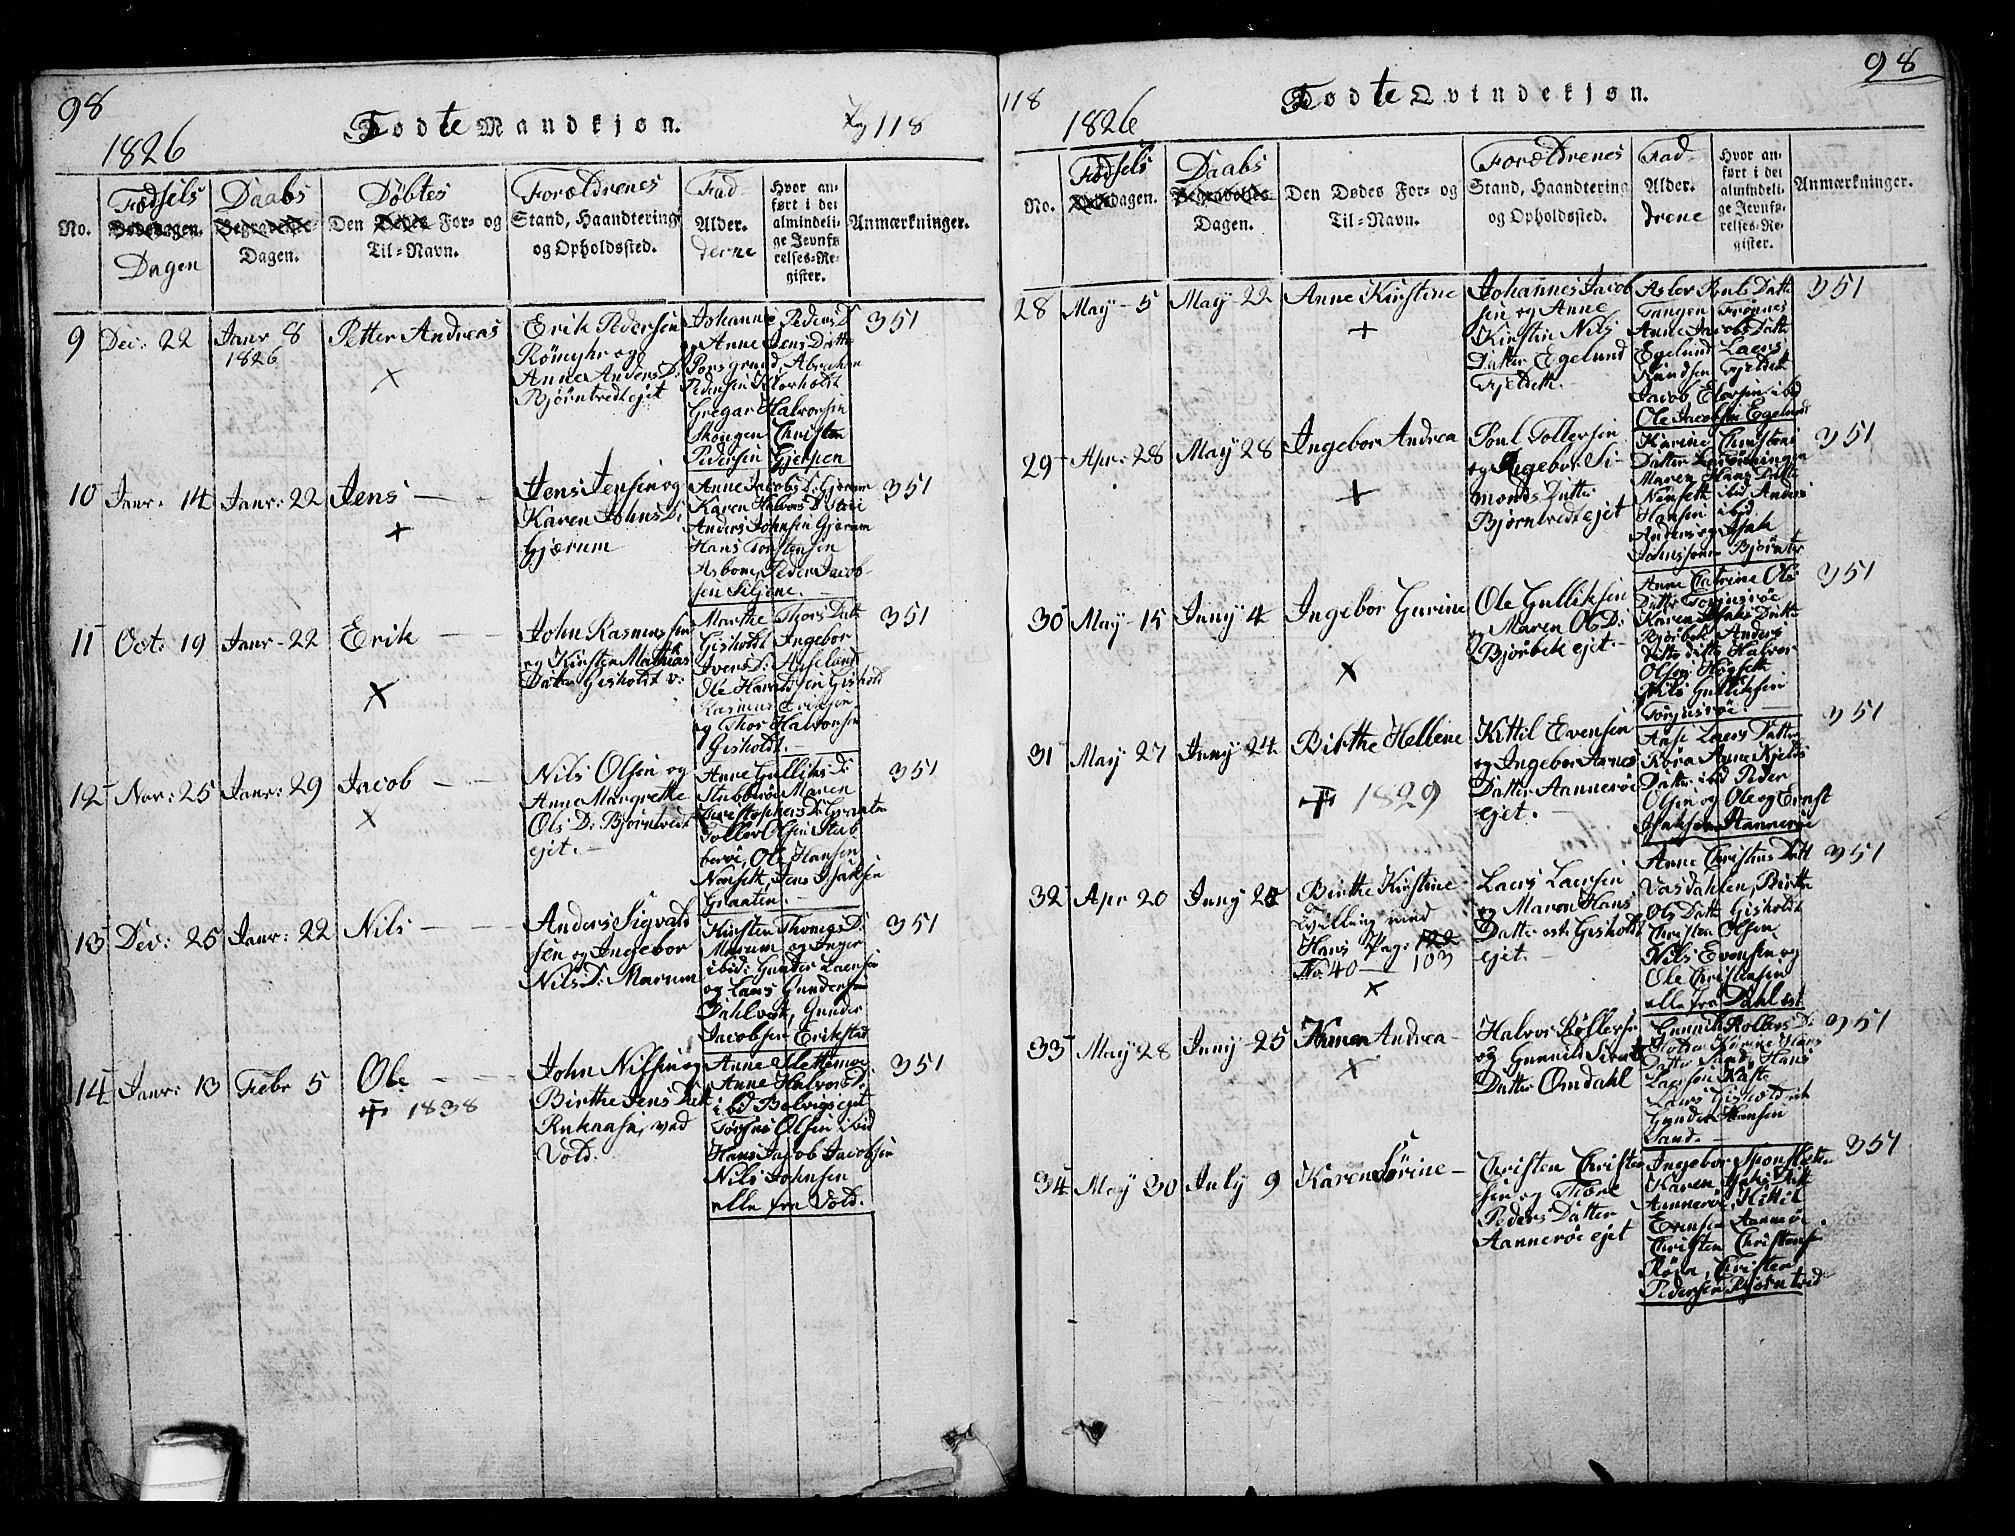 98
1826
Fødte Mandkjøn.
118
No.
Fødsels
Dødsdagen.
Dagen
Daabs
Begravelses-
Dagen.
Døbtes
Den Dødes For- og
Til-Navn.
Forældrenes
Stand, Haandtering
og Opholdssted.
Fad-
Alder.
derne
Hvor an-
ført i det
almindeli-
ge Jevnfø-
relses-Re-
gister.
Anmærkninger.
9 Dec: 22 Janr 8
1826
Petter Andreas
Erik Pedersen
Römyhr og
Anne Anders D:
Bjørntvedt ejet
Johanne Peders D
og Anne Jens Datt
Porsgrund, Abraham
Pedersen Klovholdt
Gregar Halvorsen
Skougen Christen
Pedersen Gjerpen
351
10 Janr. 14 Janr: 22 Jens
Jens Jensen og
Karen Johns D:
Gjærum
Anne Jacobs D: Gjærum
Karen Halvors D
Anders Johnsen Gjerum
Hans Torstensen
Asbom, Peder Jacob-
sen Siljene.
351
11 Oct: 19 Janr 22 Erik
John Rasmussen
og Kirsten Mathias
Datter Gisholdt v:
Marthe Thors Datt
Gisholdt Ingebor
Ivers D: Aaseland
Ole Harald sen Gishold
Rasmus Eriksen
og Thor Halvorsen
Gisholdt.
351
12 Nov: 25 Janr: 29 Jacob
Nils Olsen og
Anne Margrette
Ols D: Bjorntvedt
ejet.
Anne Gulliks D:
Stubberöe Maren
Christophers D: Graaten
Toller Olsen Stub
beröe, Ole Hansen
Nenseth, Jens Isaksen
Graaten.
351
13 Dec: 25 Janr: 22 Nils
Anders Sigvald
sen og Ingebor
Nils D: Marum
Kirsten Thomas D:
Marum og Inger
ibid: Gunder Laersen
og Laers Gundersen
Dahl vest, Gunder
Jacobsen Erikstad
351
14 Janr: 13 Febr 5 Ole
1838
John Nilsen og
Birthe Jens Datt
Ruknaasen, ved
Vold.
Anne Slettemoe
Anne Halvors D:
ibid Bolvigs ejet
Torgus Olsen ibid
Hans Jacob Jacobsen
Nils Johnsen
alle fra Vold.
351
98
118
1826
Fødte Qvindekjøn.
No.
Fødsels
Dødsdagen.
Daabs
Begravelses-
Dagen.
Den Dødes For- og
Til-Navn.
Forældrenes
Stand, Haandtering
og Opholdssted.
Fad-
Alder.
drene
Hvor an-
ført i det
almindeli-
ge Jevnfø-
relses-Re-
gister.
Anmærkninger.
28 May 5 May 22 Anne Kirstine
Johannes Jacob
sen og Anne
Kirstin Nils
Datter Egelund
Fjeldet.
Aslov Pouls Datt
Tangen Frognes
Anne Jacobs Datter
Egelund Laers
Knudsen Fjeldet
Jacob Elovsen ibid
Ole Jacobsen Egelund
351
29 Apr: 28 May 28 Ingebor Andrea
Poul Tollersen
og Ingebor Si-
monds Datter
Bjørntvedt ejet
Karine Christens
Datter
Maren Hans Datter
Nenseth ibid Anders
Hansen ibid
Anders og Isak
Johnssønn Bjørntv
351
30 May 15 Juny 4 Ingebor Gurine
Ole Gulliksen
og Maren Ols D:
Bjørbek ejet.
Anne Catrine Ols
Datter Torgusröe
Karen Isaks Datter
Bjørbek Anders
ditto ditto Halvor
Olsen Högseth
Nils Gulliksen
Torgusröe.
351
31 May 27 Juny 24 Birthe Hellene
1829
Kittil Evensen
og Ingebor Aanes
Datter Aanneröe
ejet.
Anse Laers Datter
Röra Anne Kjels
Datter ibid Peder
Olsen og Ole og Ernst
Isaksen Aanneröe
351
32 Apr 20 Juny 24 Birthe Kirstine
Tvilling med
Hans Pag: 122
No 40 103
Laers Laersen
og Maren Hans
Datter øst: Gisholdt
ejet.
Anne Christens Datt
Vasdahlen, Birthe
Ols Datt Gisholdt
Christen Olsen
Nils Evensen og
Ole Christensen
alle fra Dahl øst
351
33 May 28 Juny 25 Karen Andrea
Halvor Rollefsen
og Gunnild Sivert
Datter Omdahl
Gunnild Rollefs D:
Holden Karine Hans
Datter Sand, Hans
Laersen
Laers Gisholdt
Gunder Hansen
Sand.
351
34 May 30 July 9 Karen Sörine
Christen Christen
sen og Thore
Peders Datter
Aanneröe ejet
Ingebor
Karen Isaks Datt
Aanneröe, Kittil
Evensen Aanneröe.
Christen Christensen
Röra, Christen
Pedersen Bjorntved
351